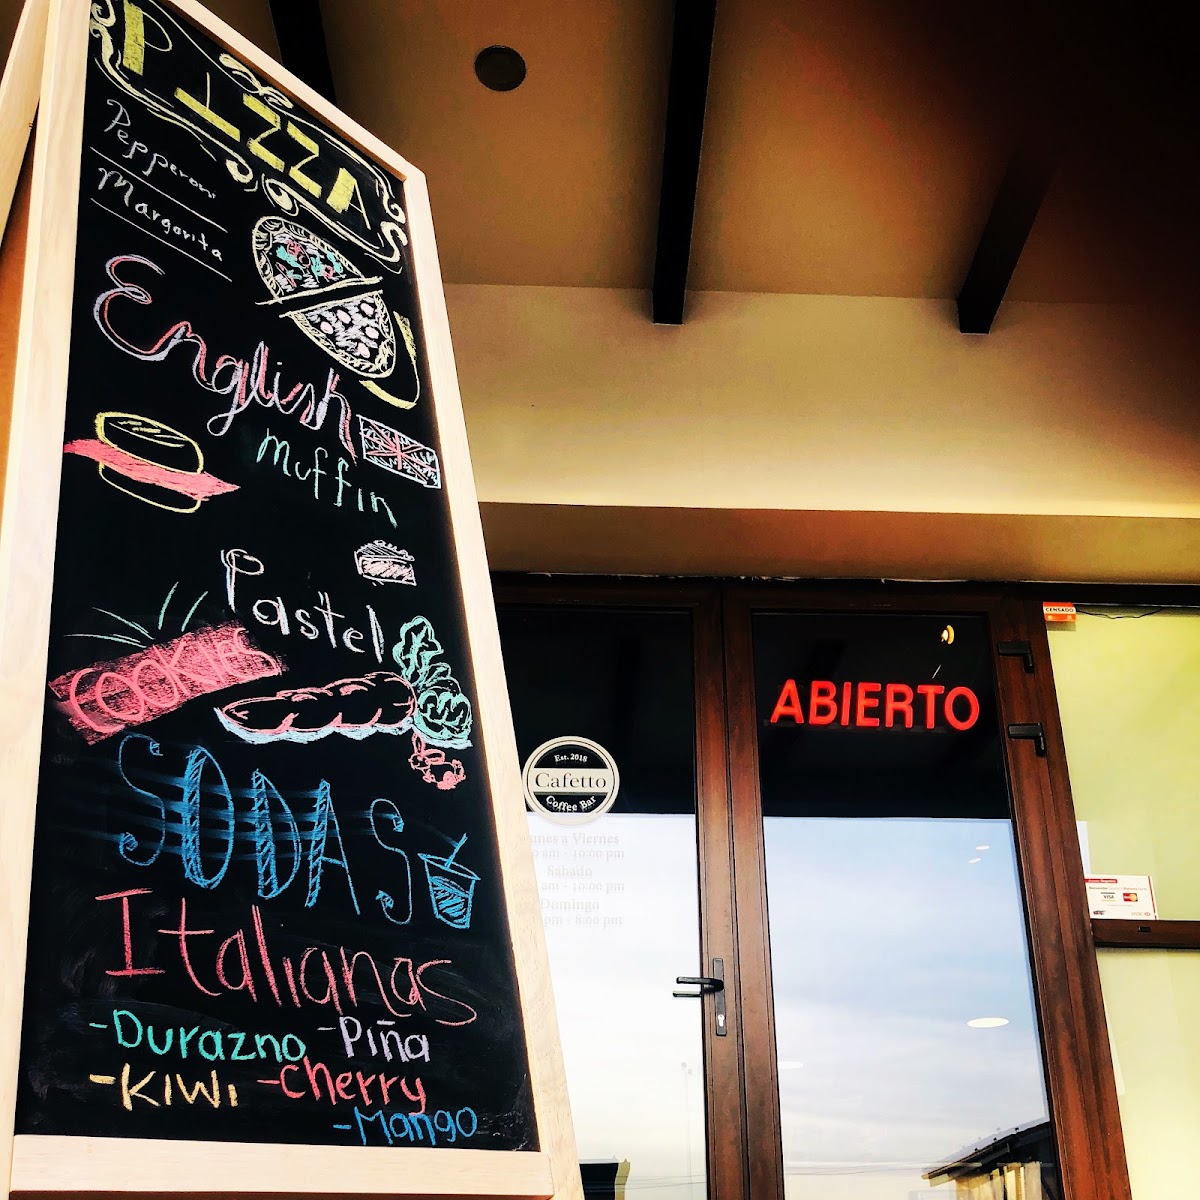 PIZZAS
Pepperoni
Margarita
English
Muffin
Pastel
COOKIES
SODAS
Italianas
-Durazno -Piña
-Kiwi -Cherry
-Mango
CENSADO
ABIERTO
Est. 2018
Cafetto
Coffee Bar
Lunes a Viernes
am - 10:00 pm
Sábado
am - 10:00 pm
Domingo
pm - 8:00 pm
VISA